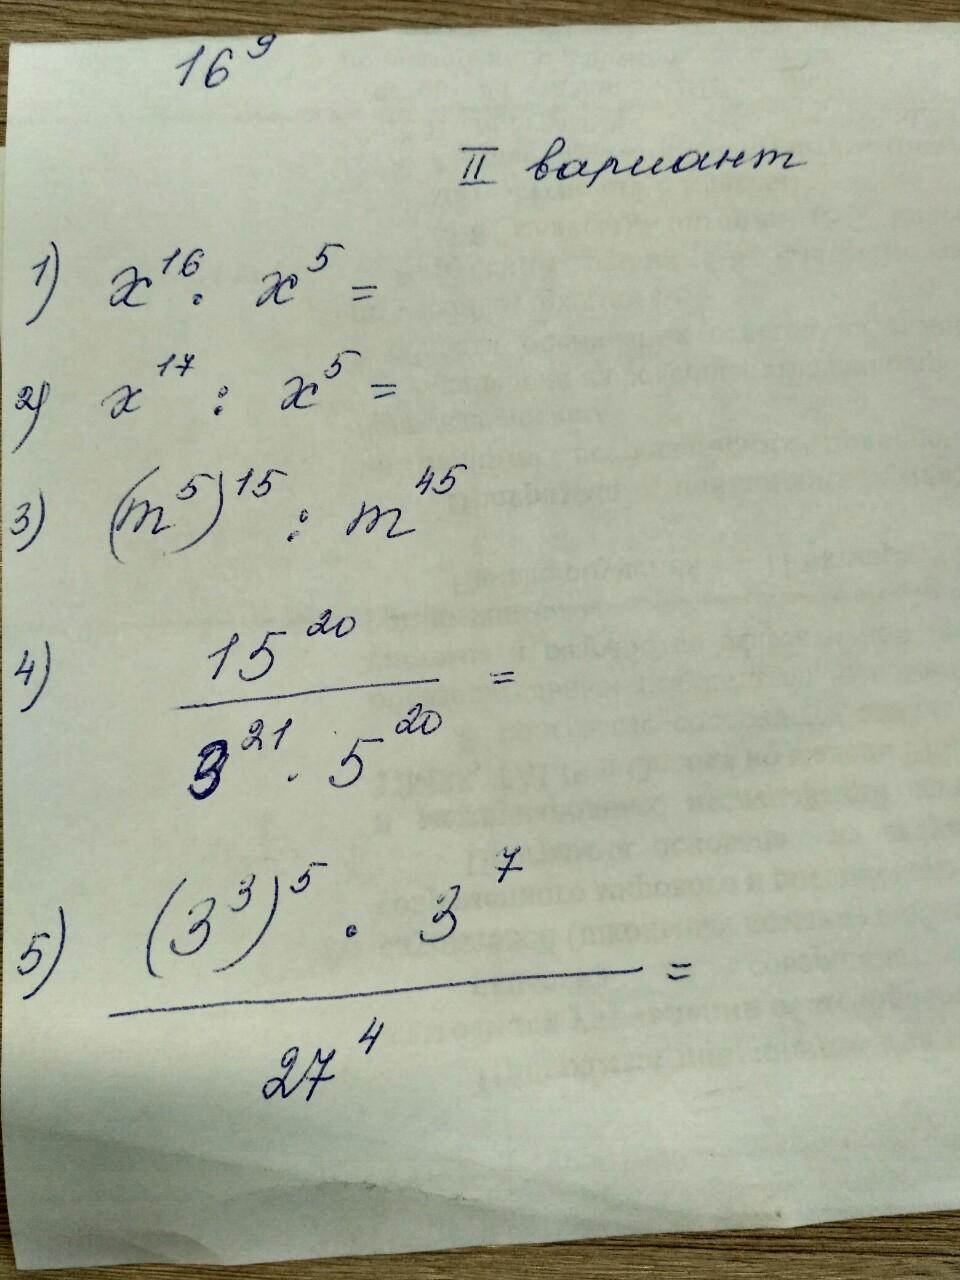 16⁹
II вариант
1) x¹⁶ · x⁵ =
2) x¹⁷ : x⁵ =
3) (m⁵)¹⁵ : m⁴⁵
4) 15²⁰ =
3²¹ · 5²⁰
5) (3³)⁵ · 3⁷ =
27⁴